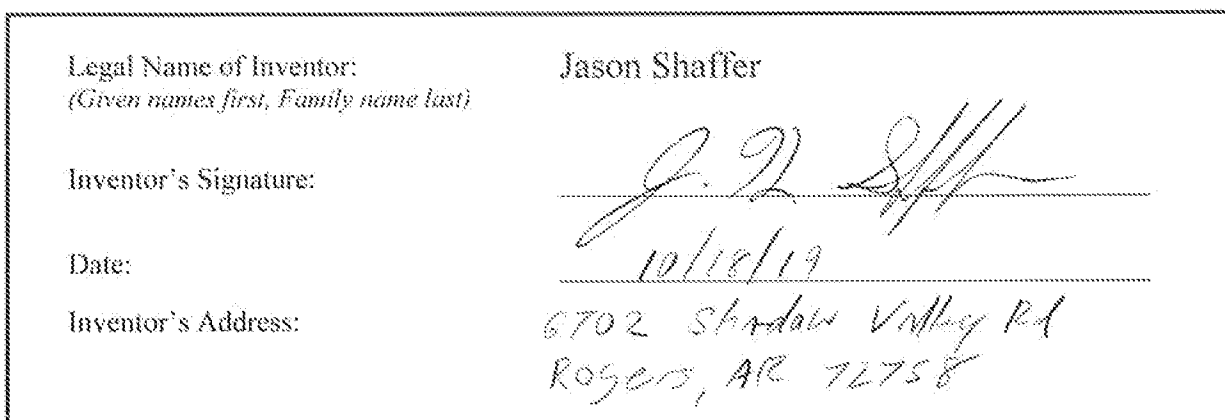 Legal Name of Inventor: Jason Shaffer
(Given names first, Family name last)
Inventor's Signature:
Date: 10/18/19
Inventor's Address: 6702 Shadow Valley Rd
Rogers, AR 72758